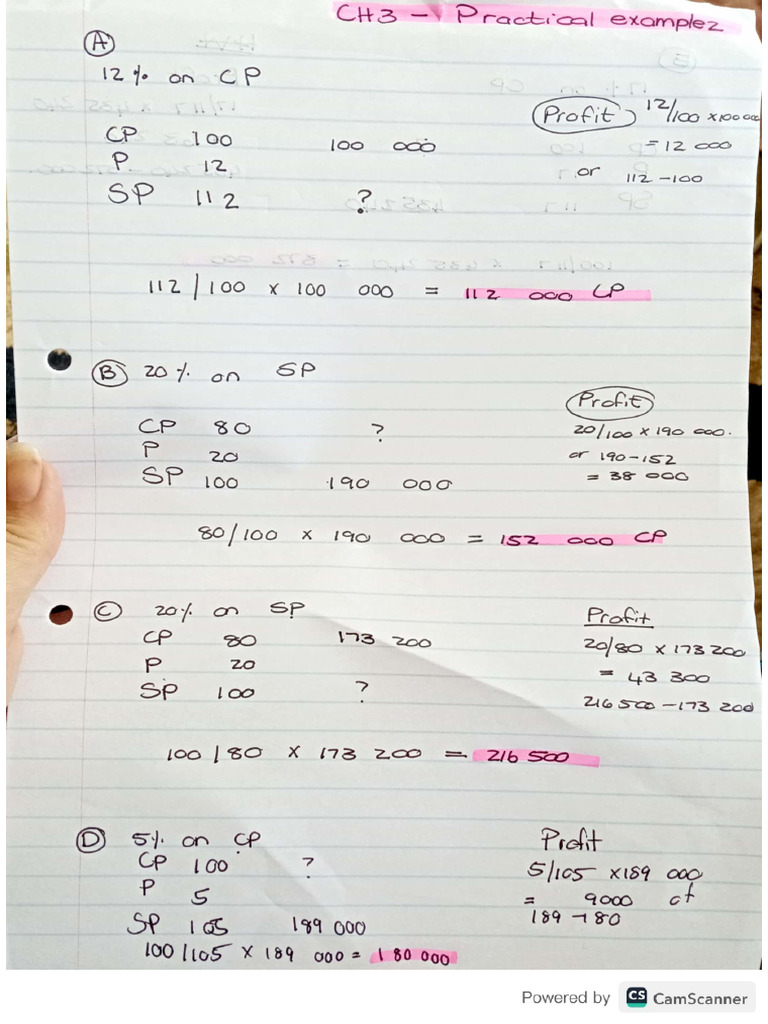 CH3 - Practical example 2
A
12 % on CP
Profit 12/100 x 100 000
CP 100 100 000
= 12 000
P 12
or 112 - 100
SP 112 ?
112 / 100 x 100 000 = 112 000 CP
B 20 % on SP
Profit
CP 80 ?
20/100 x 190 000.
P 20
or 190 - 152
SP 100 190 000
= 38 000
80 / 100 x 190 000 = 152 000 CP
C 20 % on SP
Profit
CP 80 173 200
20/80 x 173 200
P 20
= 43 300
SP 100 ?
216 500 - 173 200
100 / 80 x 173 200 = 216 500
D 5 % on CP
Profit
CP 100 ?
5/105 x 189 000
P 5
= 9000 of
SP 105 189 000
189 - 180
100 / 105 x 189 000 = 180 000
Powered by CS CamScanner